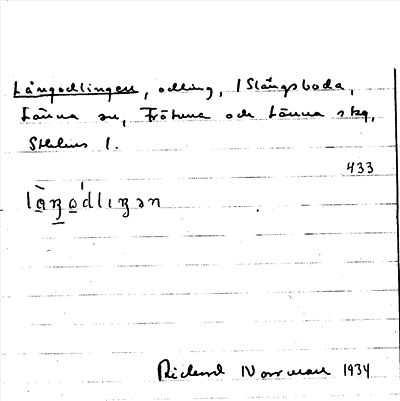 Långodlingen, odling, 1 Slångsboda,
Länna sn, Frötuna och Länna skg,
Sthlms l.
433
lå̀ŋo̱ˈdlıŋən
Rickard Norrman 1934